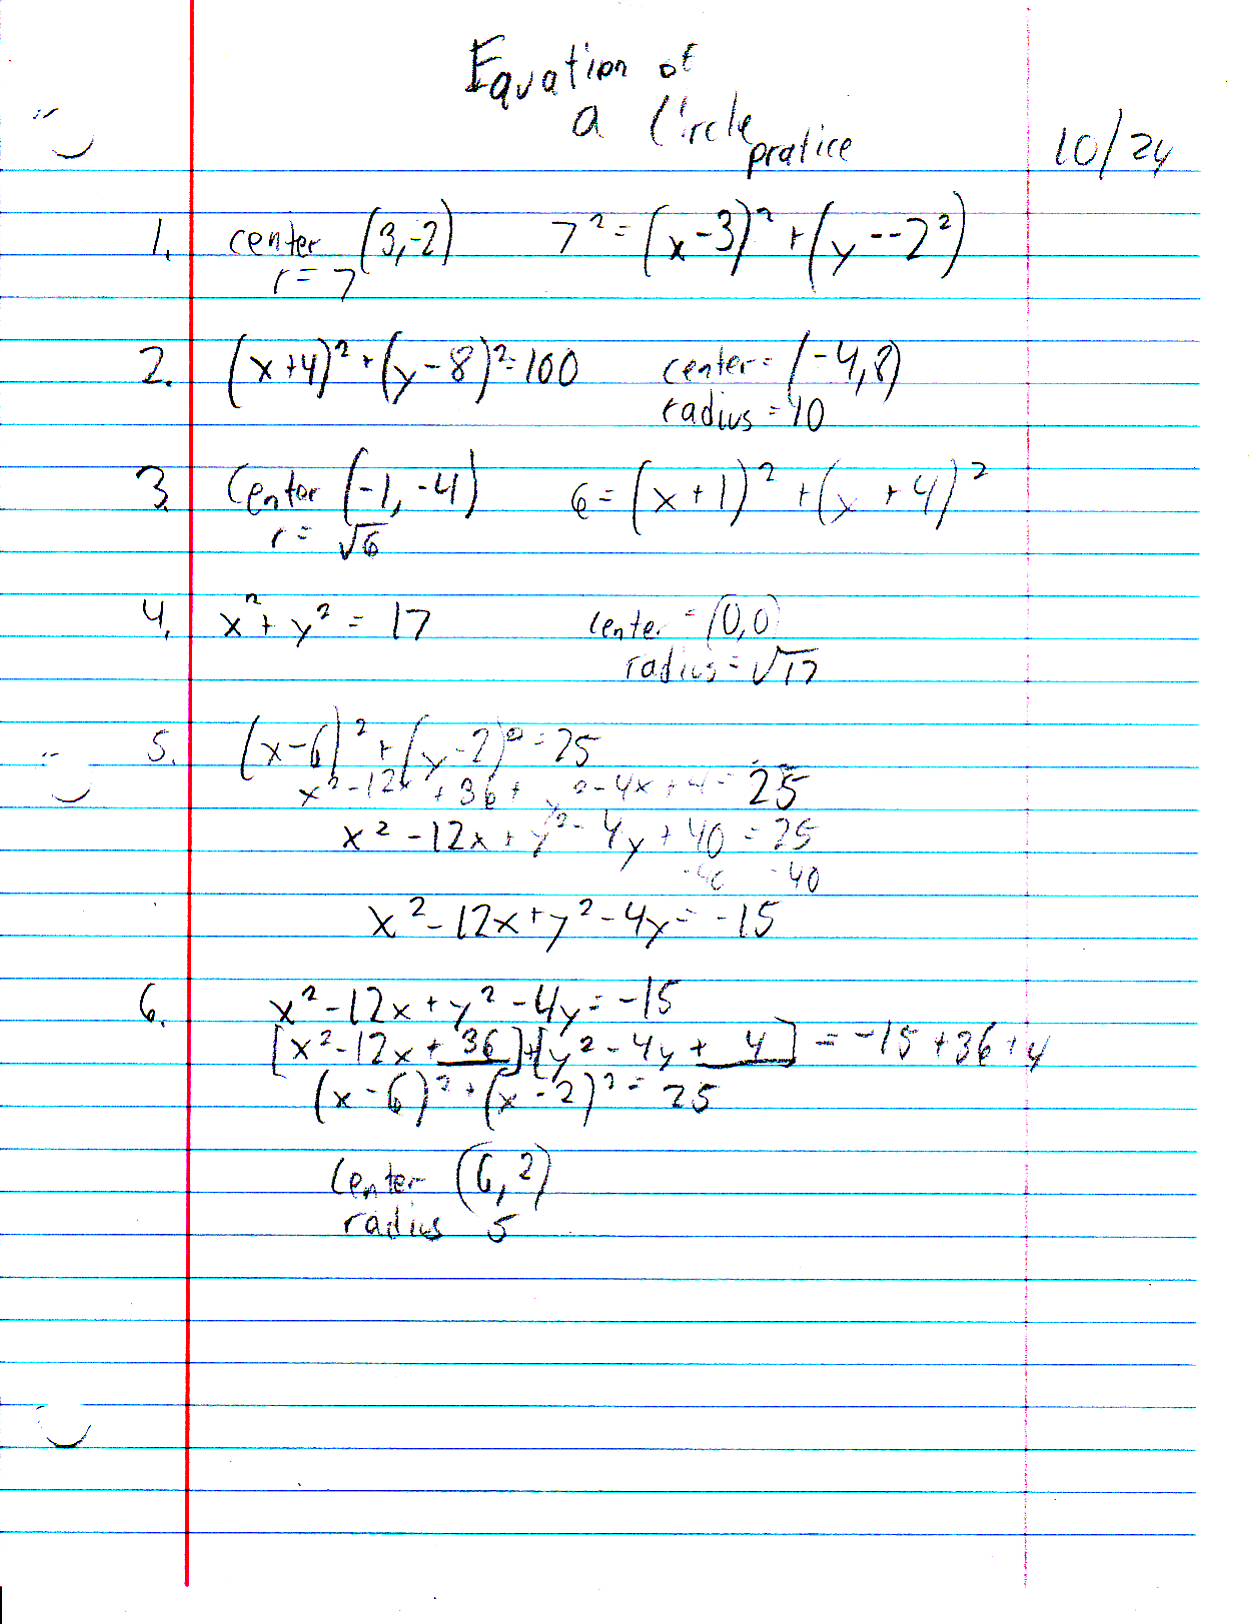 Equation of
a Circle
pratice
10/24
1. center (3,-2) 7² = (x-3)² + (y--2²)
r = 7
2. (x+4)² + (y-8)² = 100 center = (-4,8)
radius = 10
3. Center (-1, -4) 6 = (x+1)² + (y+4)²
r = √6
4. x² + y² = 17 center = (0,0)
radius = √17
5. (x-6)² + (y-2)² = 25
x² - 12x + 36 + y² - 4x + 4 = 25
x² - 12x + y² - 4y + 40 = 25
-40 -40
x² - 12x + y² - 4y = -15
6. x² - 12x + y² - 4y = -15
[x² - 12x + 36] + [y² - 4y + 4] = -15 + 36 + 4
(x-6)² + (x-2)² = 25
Center (6,2)
radius 5